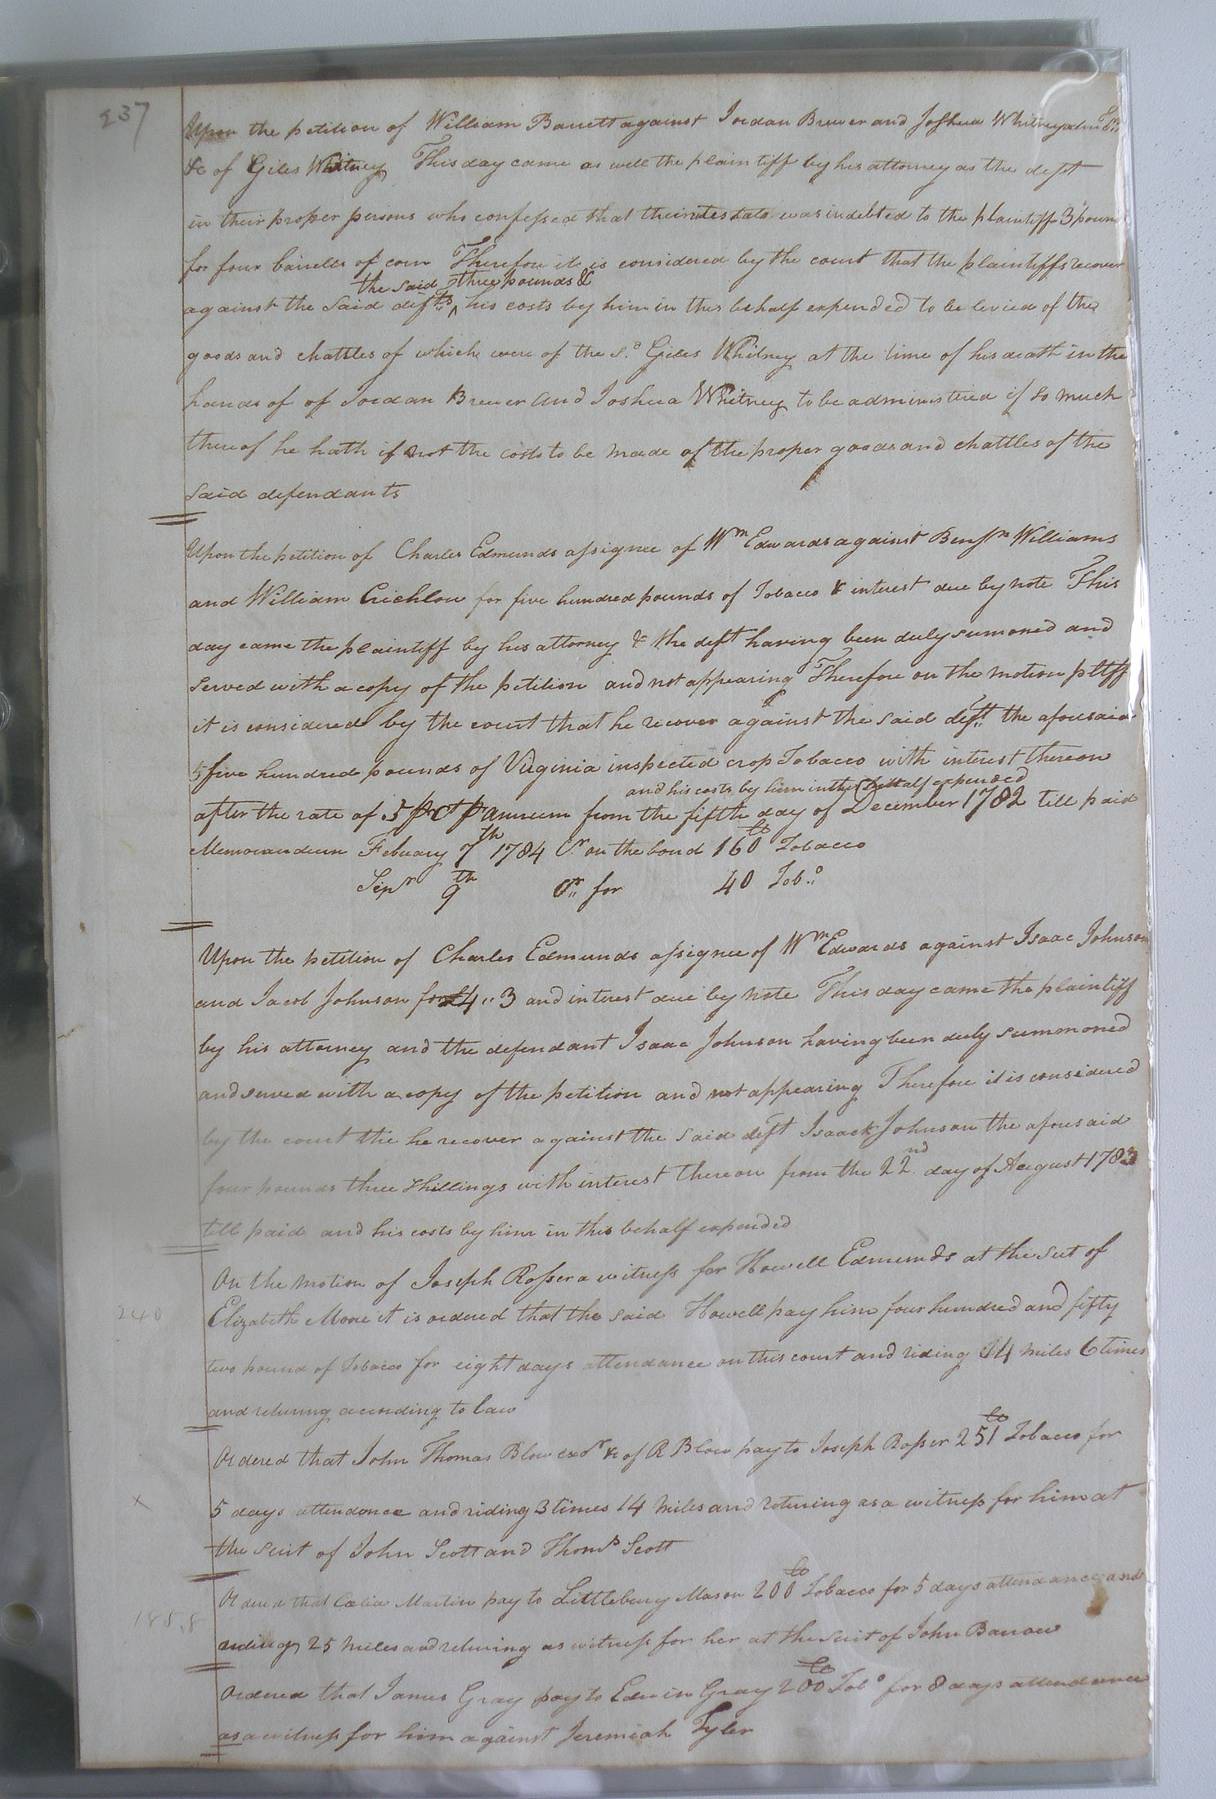 237
Upon the petition of William Barrett against Jordan Brewer and Joshua Whitney
&c of Giles Whitney This day came as well the plaintiff by his attorney as the deft
in their proper persons who confessed that their intestate was indebted to the plaintiff 3 pound
for four barrells of corn Therefore it is considered by the court that the plaintiffs recover
the said three pounds &
against the said defts ^ his costs by him in this behalf expended to be levied of the
goods and chattles of which were of the sd Giles Whitney at the time of his death in the
hands of of Jordan Brewer and Joshua Whitney to be administered if so much
thereof he hath if not the costs to be made of the proper goods and chattles of the
said defendants
Upon the petition of Charles Edmunds assignee of Wm Edwards against Benjn Williams
and William Crichlow for five hundred pounds of Tobacco & interest due by note This
day came the plaintiff by his attorney & the deft having been duly sumoned and
served with a copy of the petition and not appearing Therefore on the motion pltff
it is considered by the court that he recover against the said deft the aforesaid
five hundred pounds of Virginia inspected crop Tobacco with interest thereon
and his costs by him in this behalf expended
after the rate of 5 pr Ct pr annum from the fifth day of December 1782 till paid
Memorandum Febuary 7th 1784 Cr on the bond 160 lb Tobacco
Sepr 9th Cr for 40 Tobo
Upon the petition of Charles Edmunds assignee of Wm Edwards against Isaac Johnson
and Jacob Johnson for £4,,3 and interest due by note This day came the plaintiff
by his attorney and the defendant Isaac Johnson having been duly summoned
and served with a copy of the petition and not appearing Therefore it is considered
by the court the he recover against the said deft Isaack Johnson the aforesaid
four pounds three shillings with interest thereon from the 22nd day of August 1783
till paid and his costs by him in this behalf expended
On the motion of Joseph Rosser a witness for Howell Edmunds at the suit of
240
Elizabeth Moore it is ordered that the said Howell pay him four hundred and fifty
two pound of Tobacco for eight days attendance on this court and riding 14 miles 6 times
and returning according to law
Ordered that John Thomas Blow exor &c of R Blow pay to Joseph Rosser 251 lb Tobacco for
x
5 days attendance and riding 3 times 14 miles and returning as a witness for him at
the suit of John Scott and Thoms Scott
Ordered that Celia Martin pay to Littlebury Mason 200 lb Tobacco for 5 days attendance and
riding 25 miles and returning as witness for her at the suit of John Barrow
Ordered that James Gray pay to Edwin Gray 200 lb Tobo for 8 days attendance
as a witness for him against Jeremiah Tyler